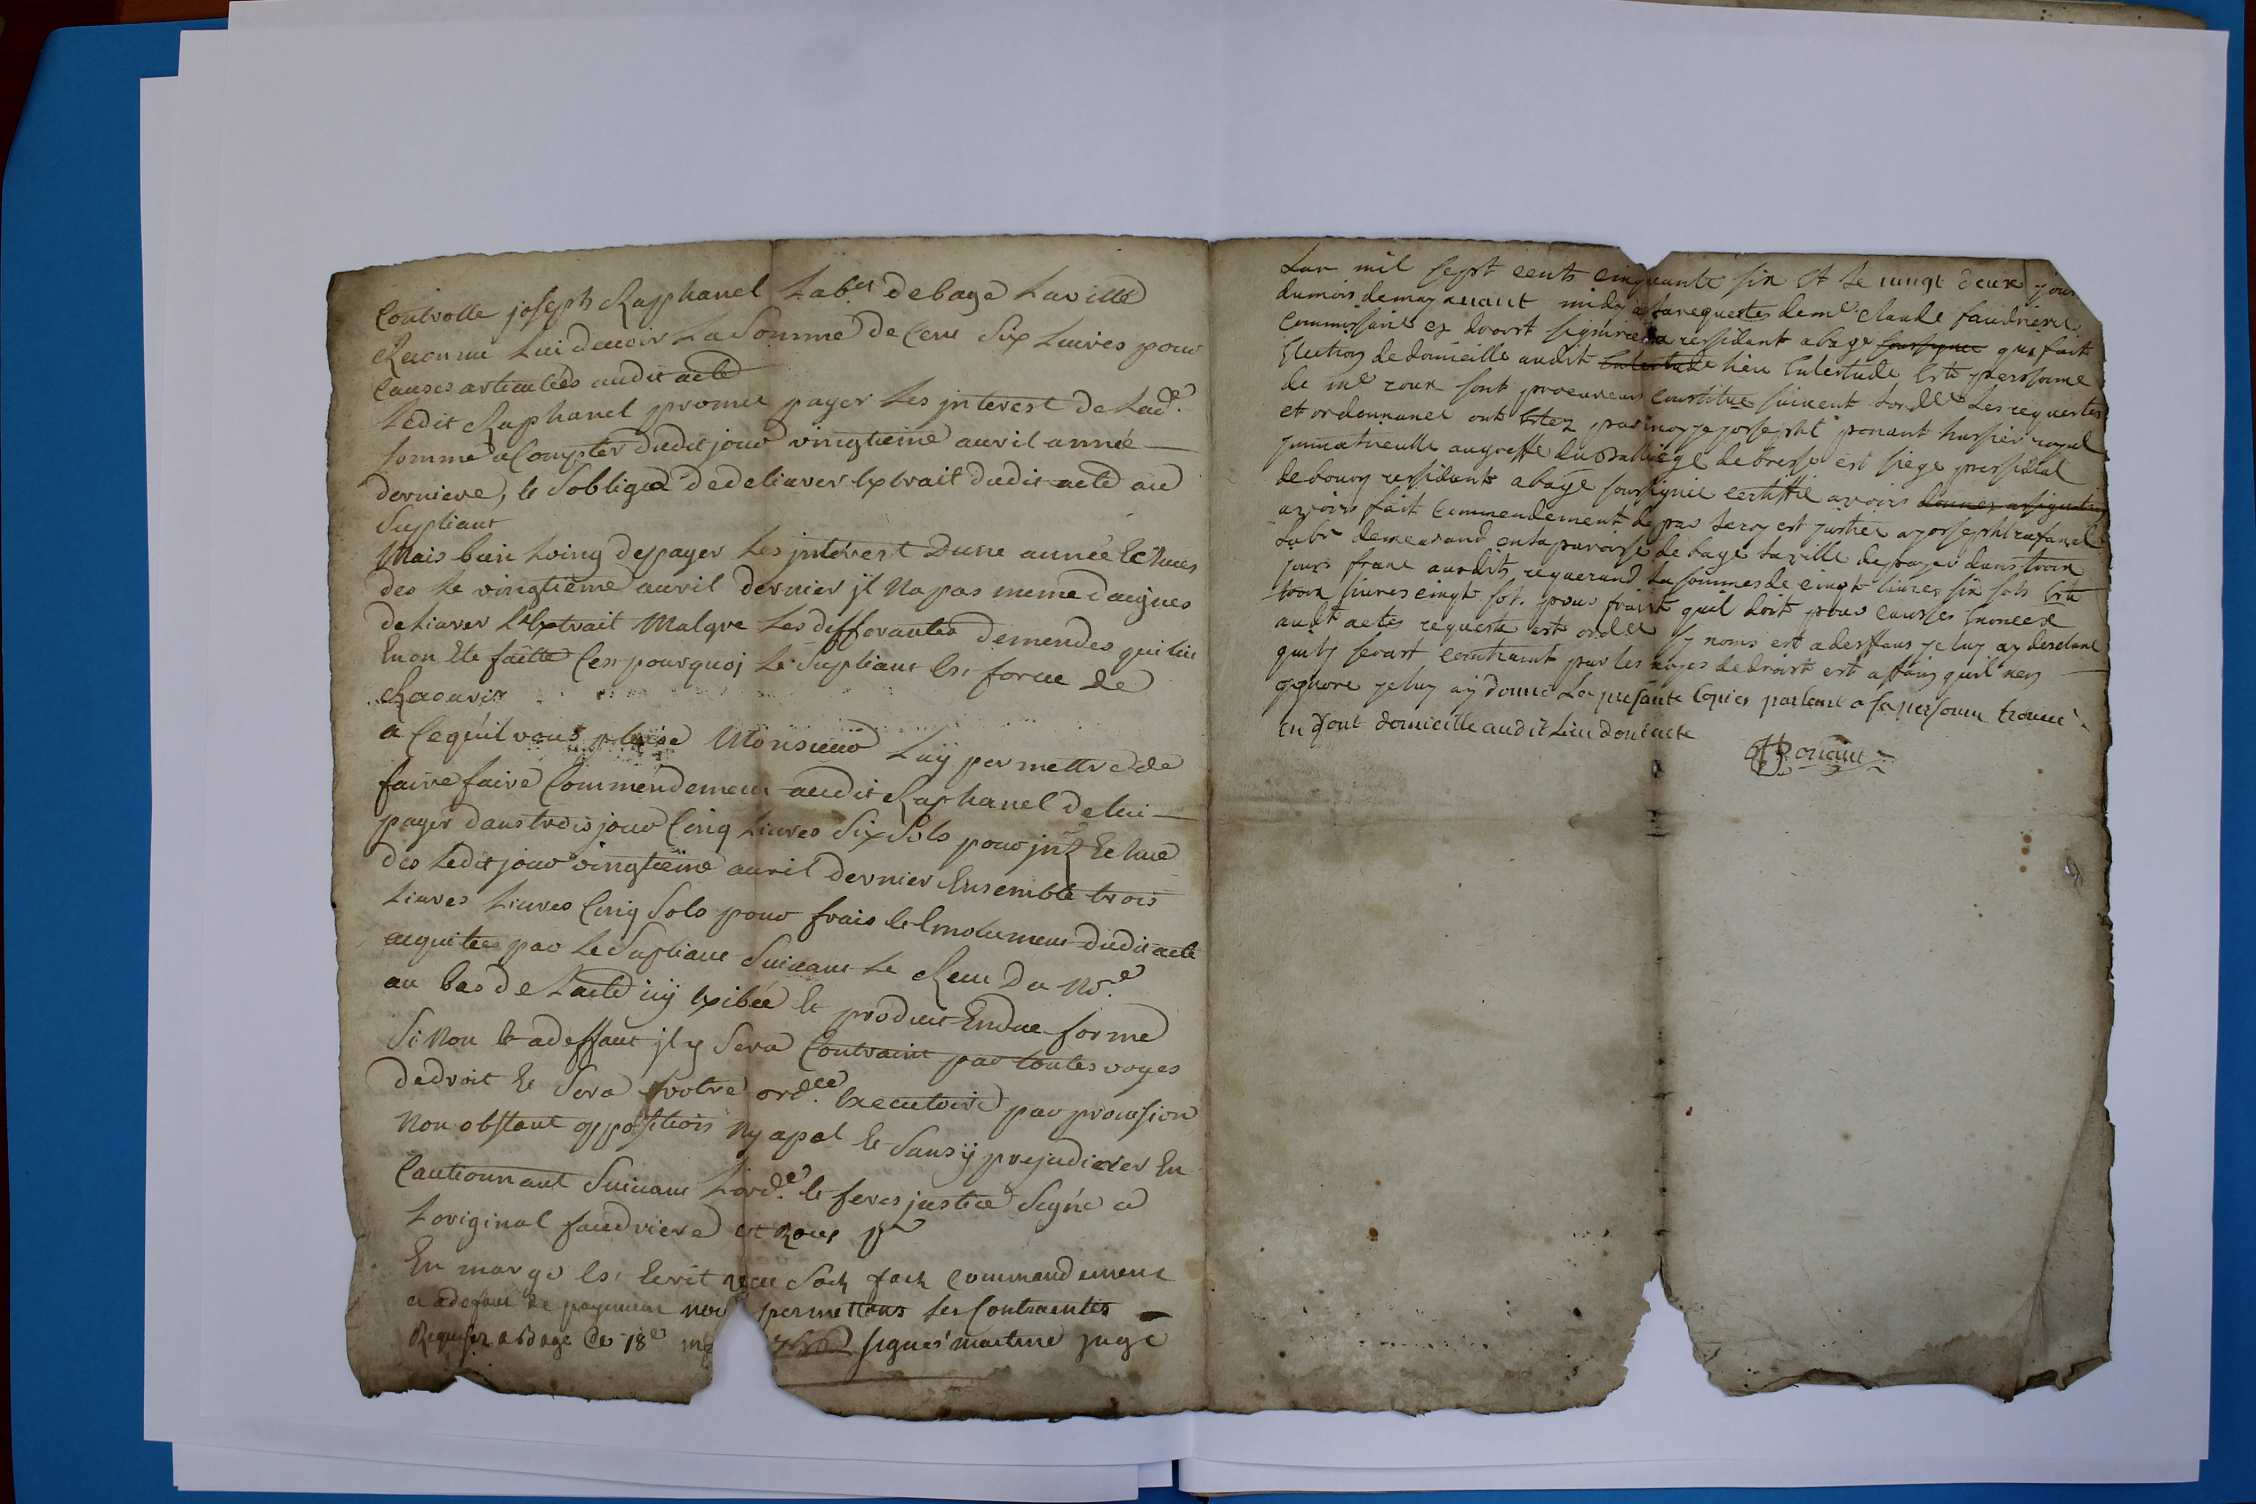 Controlle joseph Raphanel Lab.er de bage Laville
Reconnu lui devoir La Somme de Cent Six Livres pour
Causes articulées audit acte
Ledit Raphanel promit payer les jnterest de Lad.e
Somme a Compter dudit jour vingtieme auvril année
derniere, et Sobligea de deliavrer Extrait dudit acte au
Supliant
Mais bien Loing de payer les jntérest Dune année Echues
des le vingtieme auvril dernier jl Na pas meme daignes
deliavrer L'Extrait Malgre Les differantes demendes qui lui
En on Ete faitte Cest pourquoj Le Supliant Est force de
Recourir
a Ce quil vous plaise Monsieur Luÿ permettre de
faire faire Commendement audit Raphanel de lui
payer dans trois jour Cinq Livres Six Sols pour jnt Echue
des Ledit jour vingtieme auvril dernier Ensemble trois
Livres Livres Cinq Sols pour frais et Emolument dudit acte
acquitees par Le Supliant Suivant Le Recu Du No.e
au bas de L'acte icÿ Exibée et produit En due forme
Si Non et a deffaut jl y Sera Contraint par toutes voyes
de droit et Sera votre ord.ce Executoire par provision
Non obstant oppositions Ny apel et Sans ÿ prejudicier En
Cautionnant Suivant L'ord.e et feres justice Signé a
L'original faudriere et Roux pr
En marge Est Ecrit veu Soit fait Commandement
et a defaut de payement nou permettons les Contraentes
Requises a Bage Ce 18e signés martine juge
Lan mil sept cents cinquante six et le vingt deux jour
du mois de may avant midy a la requestes de me Claude faudriere
Commissaire ex droit residant a bage soussigne qui fait
Election de domicille audit lieu Lestude Est personne
de me roux sont procureur Constitue suivent lordce les requestes
et ordonnance ont Estez par moy joseph ponant hussier royal
jmmatricullé augreffe du Balliage de bresse est siege pressidial
de bourg ressidant a bage soussigné certiffié avoir donner assignation
avoir fait Commendement de par le roy est justice a joseph rafanel
Labr demeurand en la paroisse de bage la ville de payer dans troix
jours franc audit requerand la sommes de cinq livres six sols Est
troix livres cinq sol. pour frait quil doit pour causses Enoncee
audt actes requeste est ordce sy noms est a deffaus je luy ay declaré
quil y serast contraint par les voyes de droist est affain quil nen
jgnore je luy aÿ donné La presante Copies parlant a sa personne trouvé
En sont domicille audit Lieu dont acte
Ponant